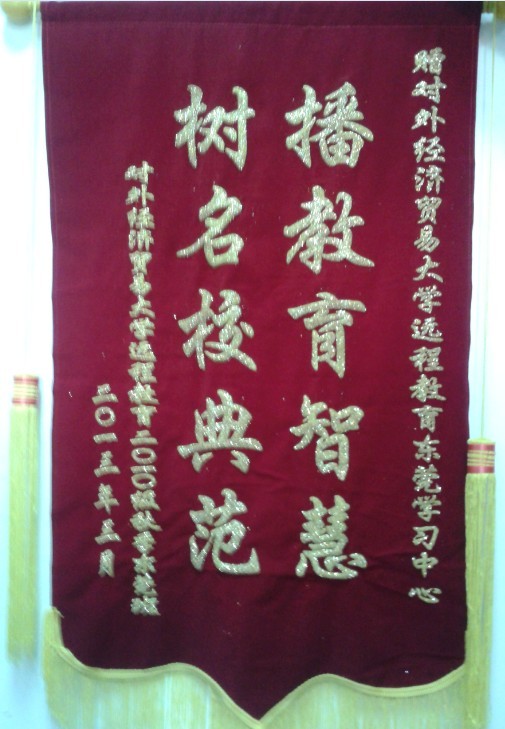 赠对外经济贸易大学远程教育东莞学习中心
播教育智慧
树名校典范
对外经济贸易大学远程教育二〇一〇级秋季东莞班
二〇一三年三月